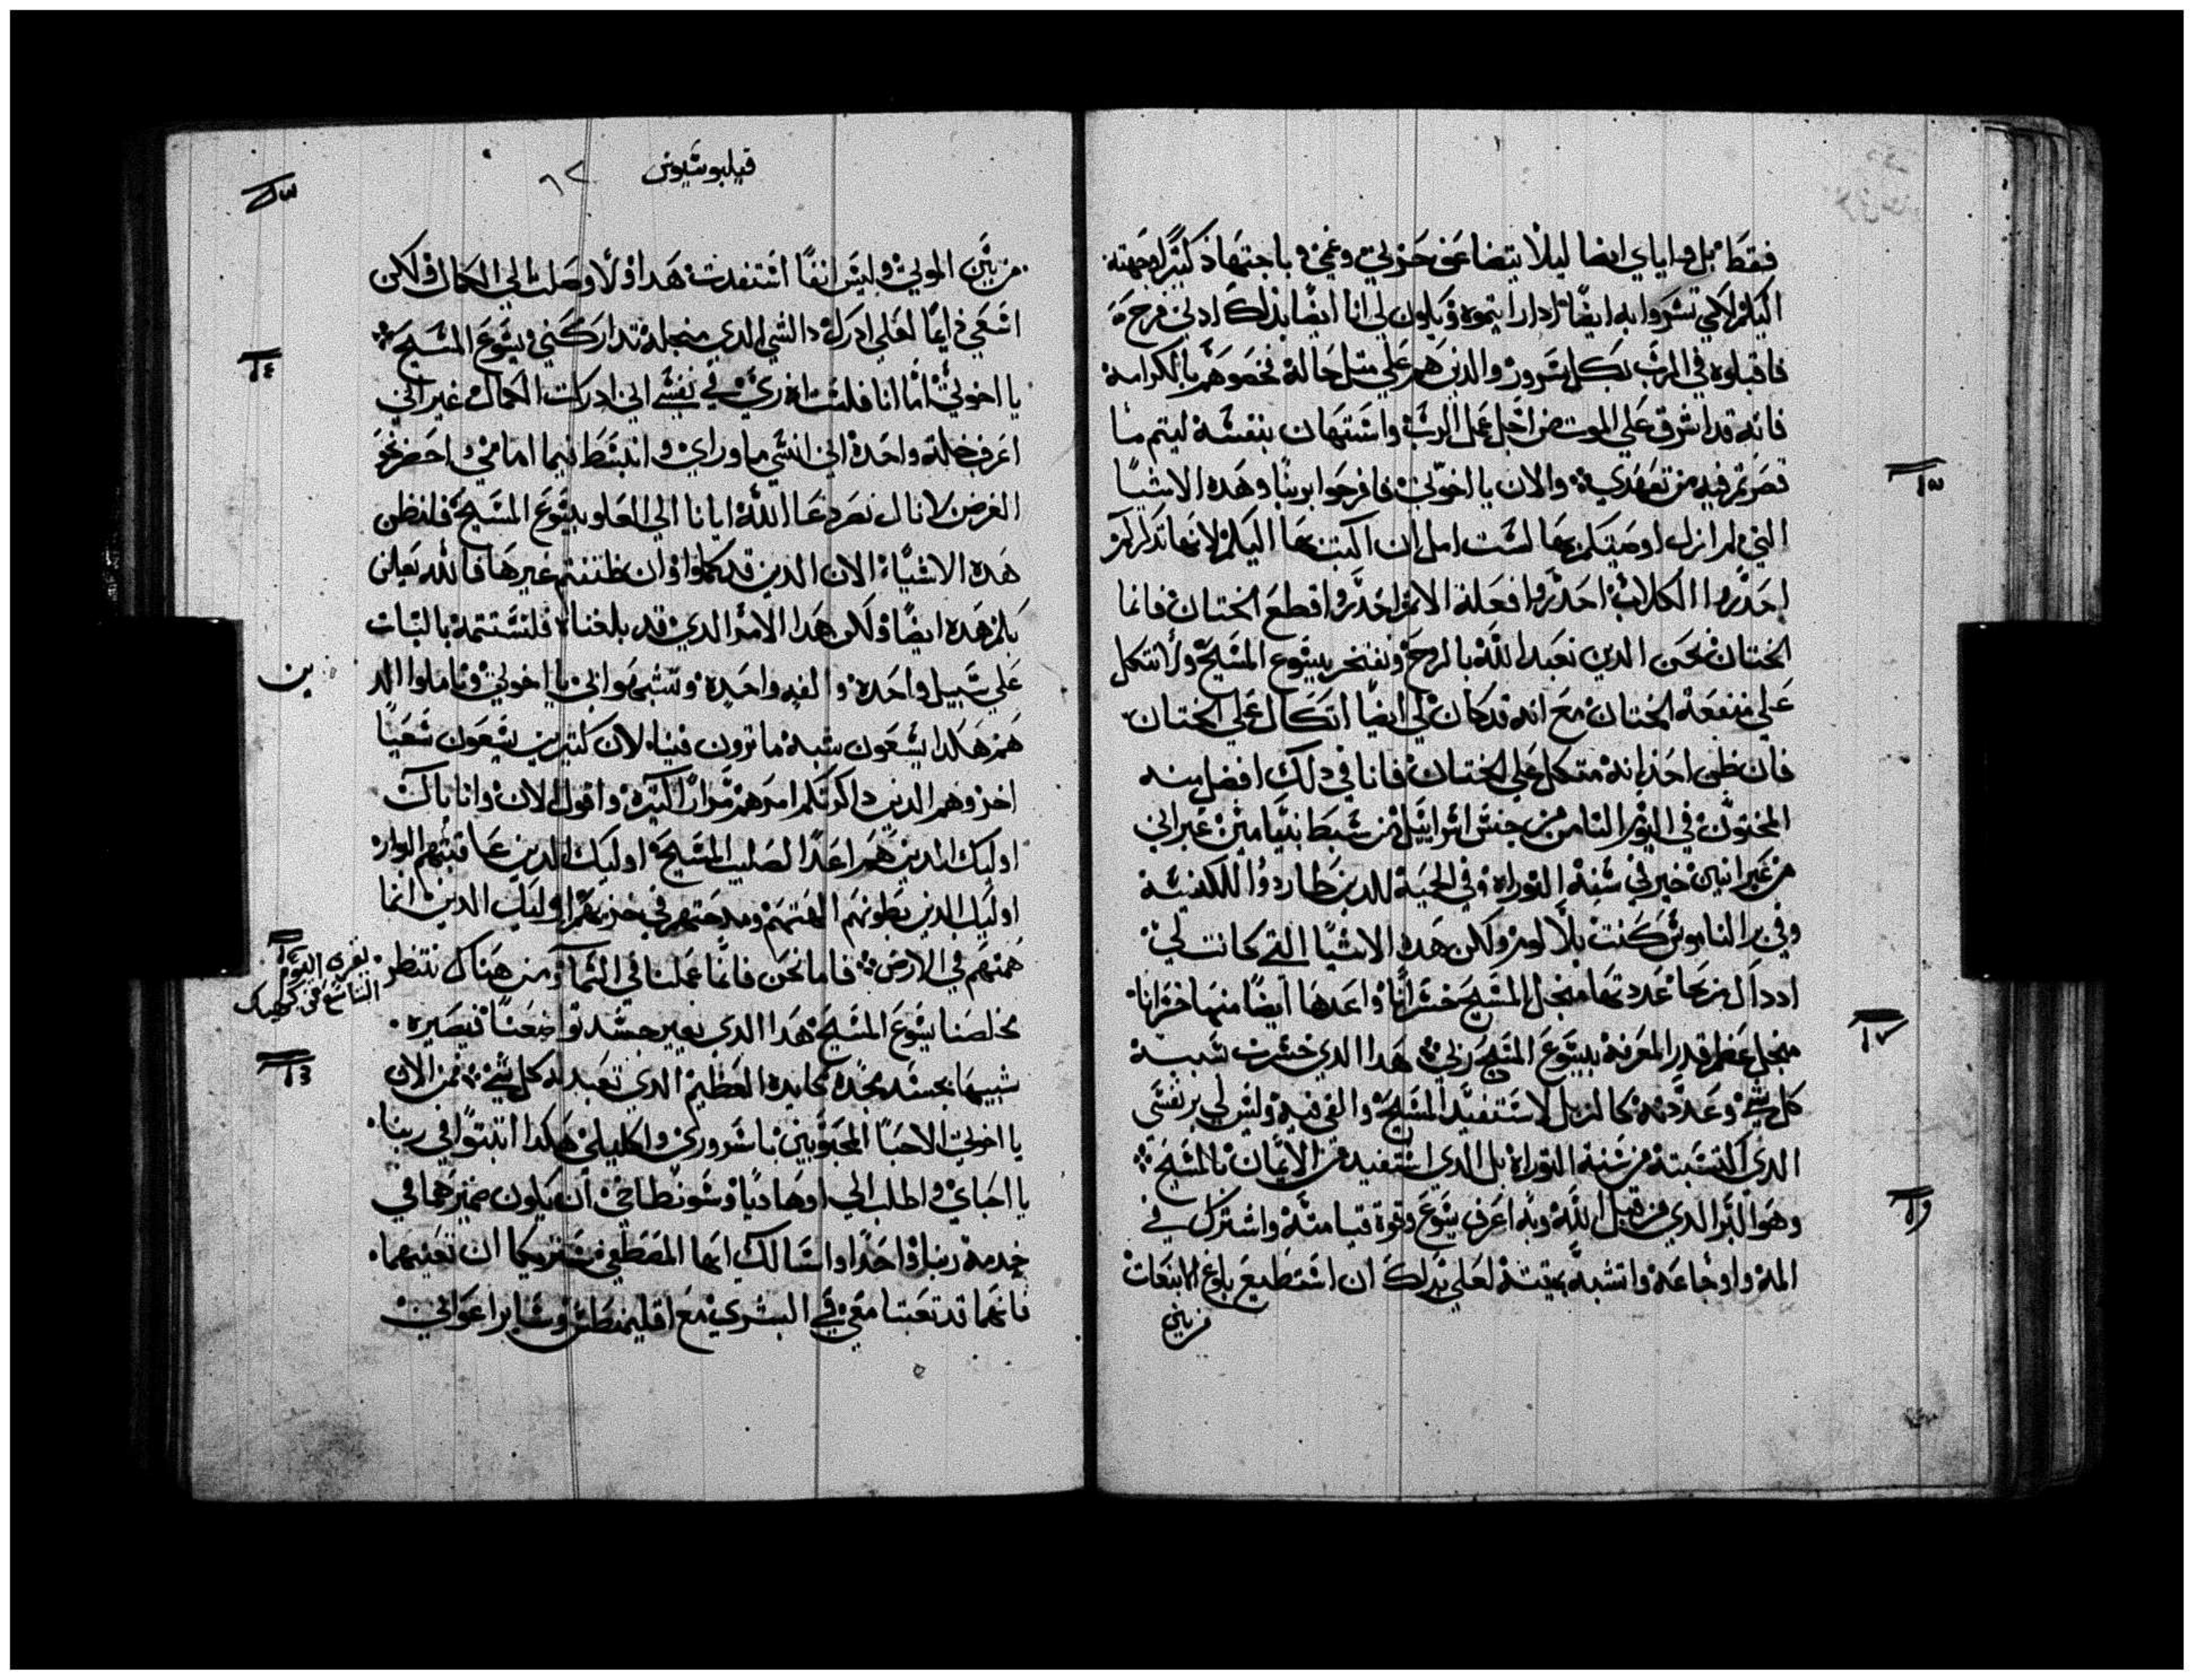 فقط بل واياي ايضا ليلا يتضاعف حزني وغمي وباجتهاد كثير وجهته
اليكم لكي تسروا به ايضا ادا رايتموه ويكون لي انا ايضا بذلك ادنى فرحة
فاقبلوه في الرب بكل سرور والدين هم على مثل حاله نخصوهم بالكرامة
فانه قد اشرف على الموت من اجل عمل الرب واستهان بنفسه ليتم ما
قصرتم فيه من تعهدي والان يا اخوتي فافرحوا بربنا وهده الاشيا
التي لم ازل اوصيكم بها لست امل ان اكتب بها اليكم لانها تذكركم
احذروا الكلاب احذروا فعلة الاثم احذروا قطع الختان فانما
الختان نحن الدين نعبد الله بالروح ونفتخر بيسوع المسيح ولا نتكل
على منفعة الختان مع انه قد كان لي ايضا اتكال على الختان
فان ظن احد انه متكل على الختان فانا في دلك افضل منه
المختون في اليوم الثامن من جنس اسراييل من سبط بنيامين عبراني
من عبرانيين خبر في سنة التوراة وفي الحمية للدين طاردوا للكنيسة
وفي بر الناموس كنت بلا لوم ولكن هده الاشيا التي كانت لي
اد داك ربحا عددتها منجل المسيح خسرانا واعدها ايضا منها خسرانا
منجل عظم قدر المعرفة بيسوع المسيح ربي هدا الدي خسرت بسببه
كل شي وعددته كالزبل لاستفيد المسيح والقى فيه وليس لي بر نفسي
الدي اكتسبته من سنة التوراة بل الدي استفيده من الايمان بالمسيح
وهو البر الدي من قبل الله وبه اعرف يسوع وقوة قيامته واشترك في
المه واوجاعه واتشبه بميتته لعلي بذلك ان استطيع بلوغ الانبعات
من بين
فيليبوسيوس ٦٢
من بين الموتى وليس انفا استفدت هدا ولا وصلت الى الكمال ولكن
اسعى دايما لعلي ادرك دا الشي الدي منجله تداركني يسوع المسيح
يا اخوتي اما انا فلست ارى في نفسي اني ادركت الكمال غير اني
اعرف خلة واحدة اني انسى ما وراي وانبسط فيما امامي واحضر نحو
الغرض لانال نصرة دعا الله ايانا الى العلو بيسوع المسيح فليظن
هده الاشيا الان الدين قد كملوا وان ظننتم غيرها فالله يعلن
لكم هده ايضا ولكن هدا الامر الدي قد بلغناه فلنستتمه بالثبات
على سبيل واحدة والفه واحدة وتشبهوا بي يا اخوتي وتاملوا الد
هم هكدا يسعون شبه ما ترون فينا لان كثيرين يسعون سعيا
ين
اخر وهم الدين داكرتكم امرهم مرارا كثيرة واقول الان وانا باك
اوليك الدين هم اعدا لصليب المسيح اوليك الدين عاقبتهم البوار
اوليك الدين بطونهم الهتهم ومدحتهم في خزيهم اوليك الدين انما
همتهم في الارض فاما نحن فانما عملنا في السما ومن هناك ننتظر
يقرى اليوم
التاسع من كيهك
مخلصنا يسوع المسيح هدا الدي يغير جسد تواضعنا فيصيره
شبيها بجسد مجده كايده العظيم الدي تعبد له كل شي فمن الان
يا اخوتي الاحبا المحبوبين يا سروري واكليلي هكدا اثبتوا في ربنا
يا احباي واطلب الى اوهاديا وسونطاخي ان يكون ضميرهما في
خدمة ربنا واحدا واسالك ايها المصطفى شريكا ان تعينهما
فانهما قد تعبتا معي في البشرى مع اقليمنطس وساير اعواني